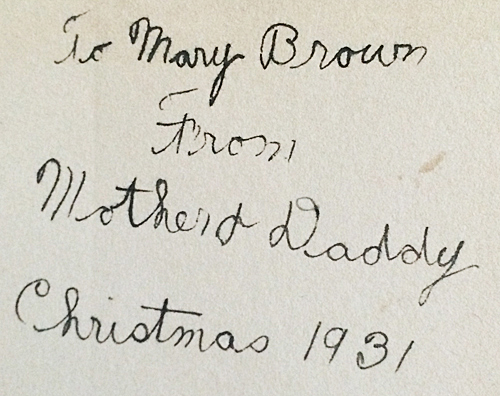 To Mary Brown
From
Mother & Daddy
Christmas 1931